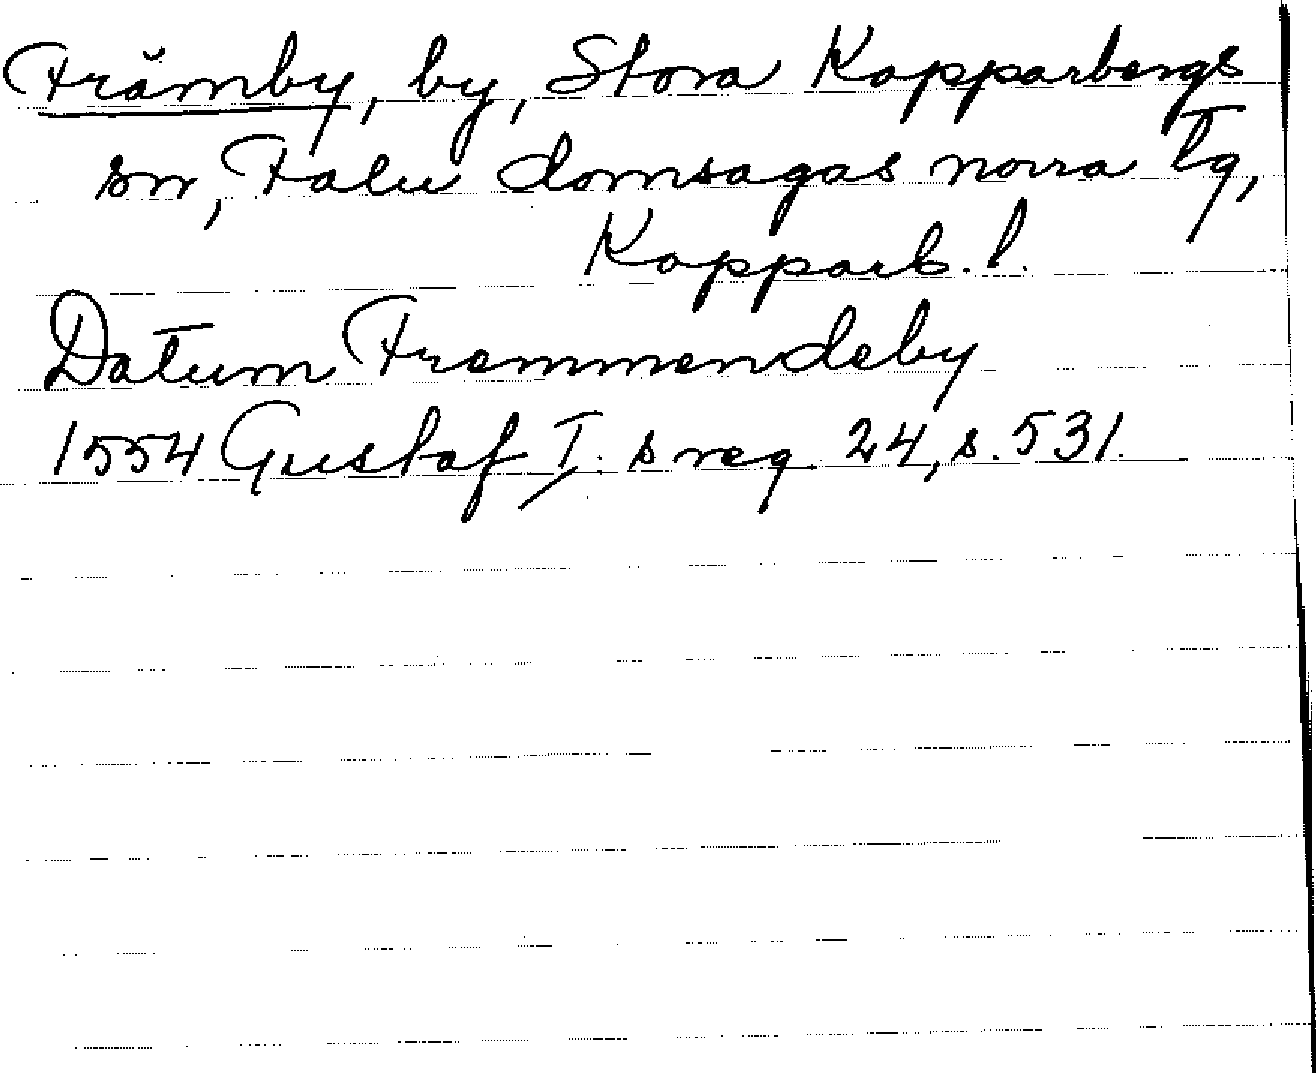 Främby, by, Stora Kopparbergs
sn, Falu domsagas norra tg,
Kopparb. l.
Datum Fremmendeby
1554 Gustaf I. s reg 24, s. 531.